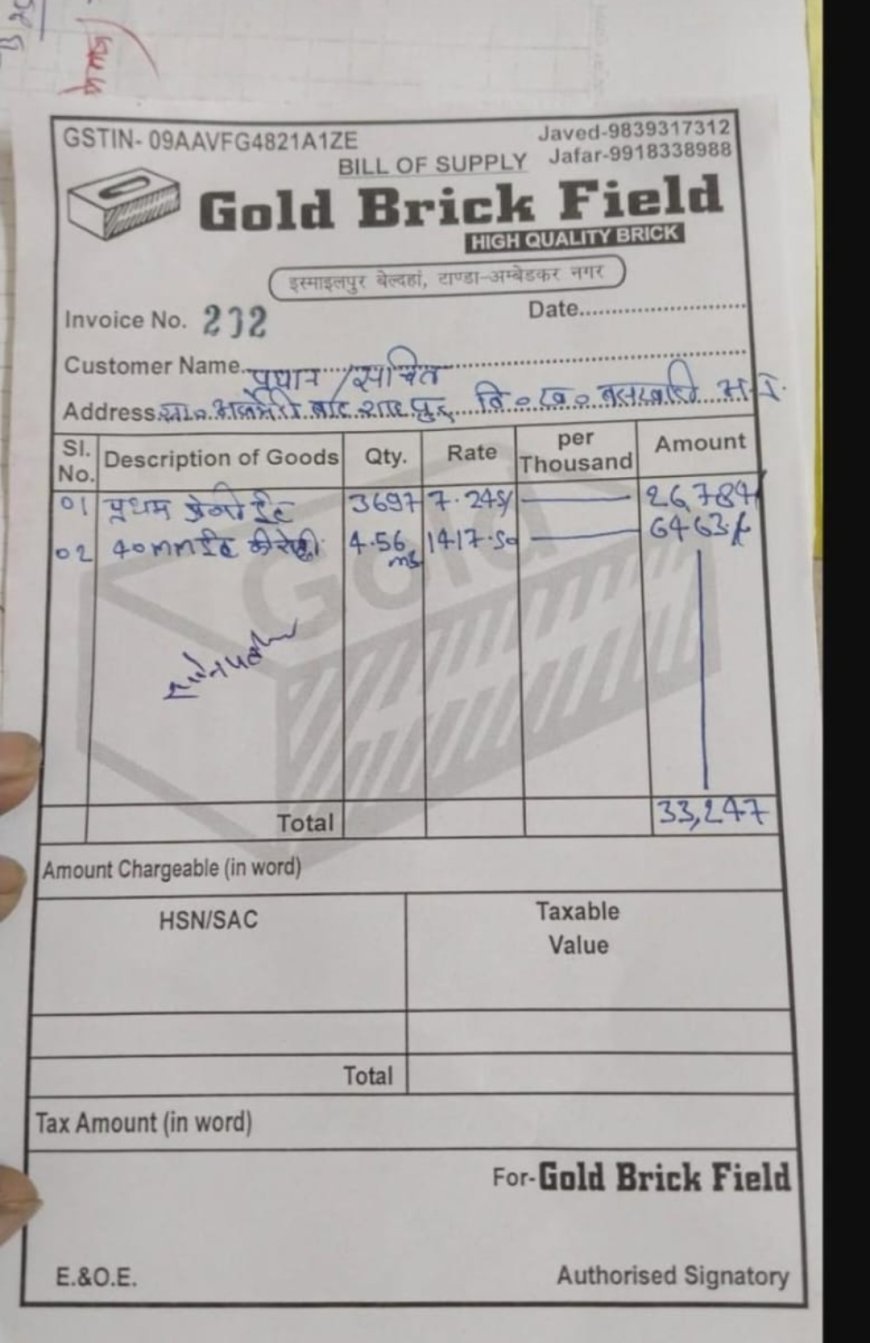 GSTIN- 09AAVFG4821A1ZE
Javed-9839317312
Jafar-9918338988
BILL OF SUPPLY
Gold Brick Field
HIGH QUALITY BRICK
इस्माइलपुर बेल्दहां, टाण्डा-अम्बेडकर नगर
Invoice No. 232
Date
Customer Name. प्रधान / सचिव
Address
Sl. No. Description of Goods Qty. Rate per Thousand Amount
01 प्रथम श्रेणी ईंट 3697 7.245/ 26,784/
02 40mm ईंट की 4.56 m3 1417.50 6463/-
Gold
Total 33,247
Amount Chargeable (in word)
HSN/SAC Taxable Value
Total
Tax Amount (in word)
For-Gold Brick Field
E.&O.E. Authorised Signatory